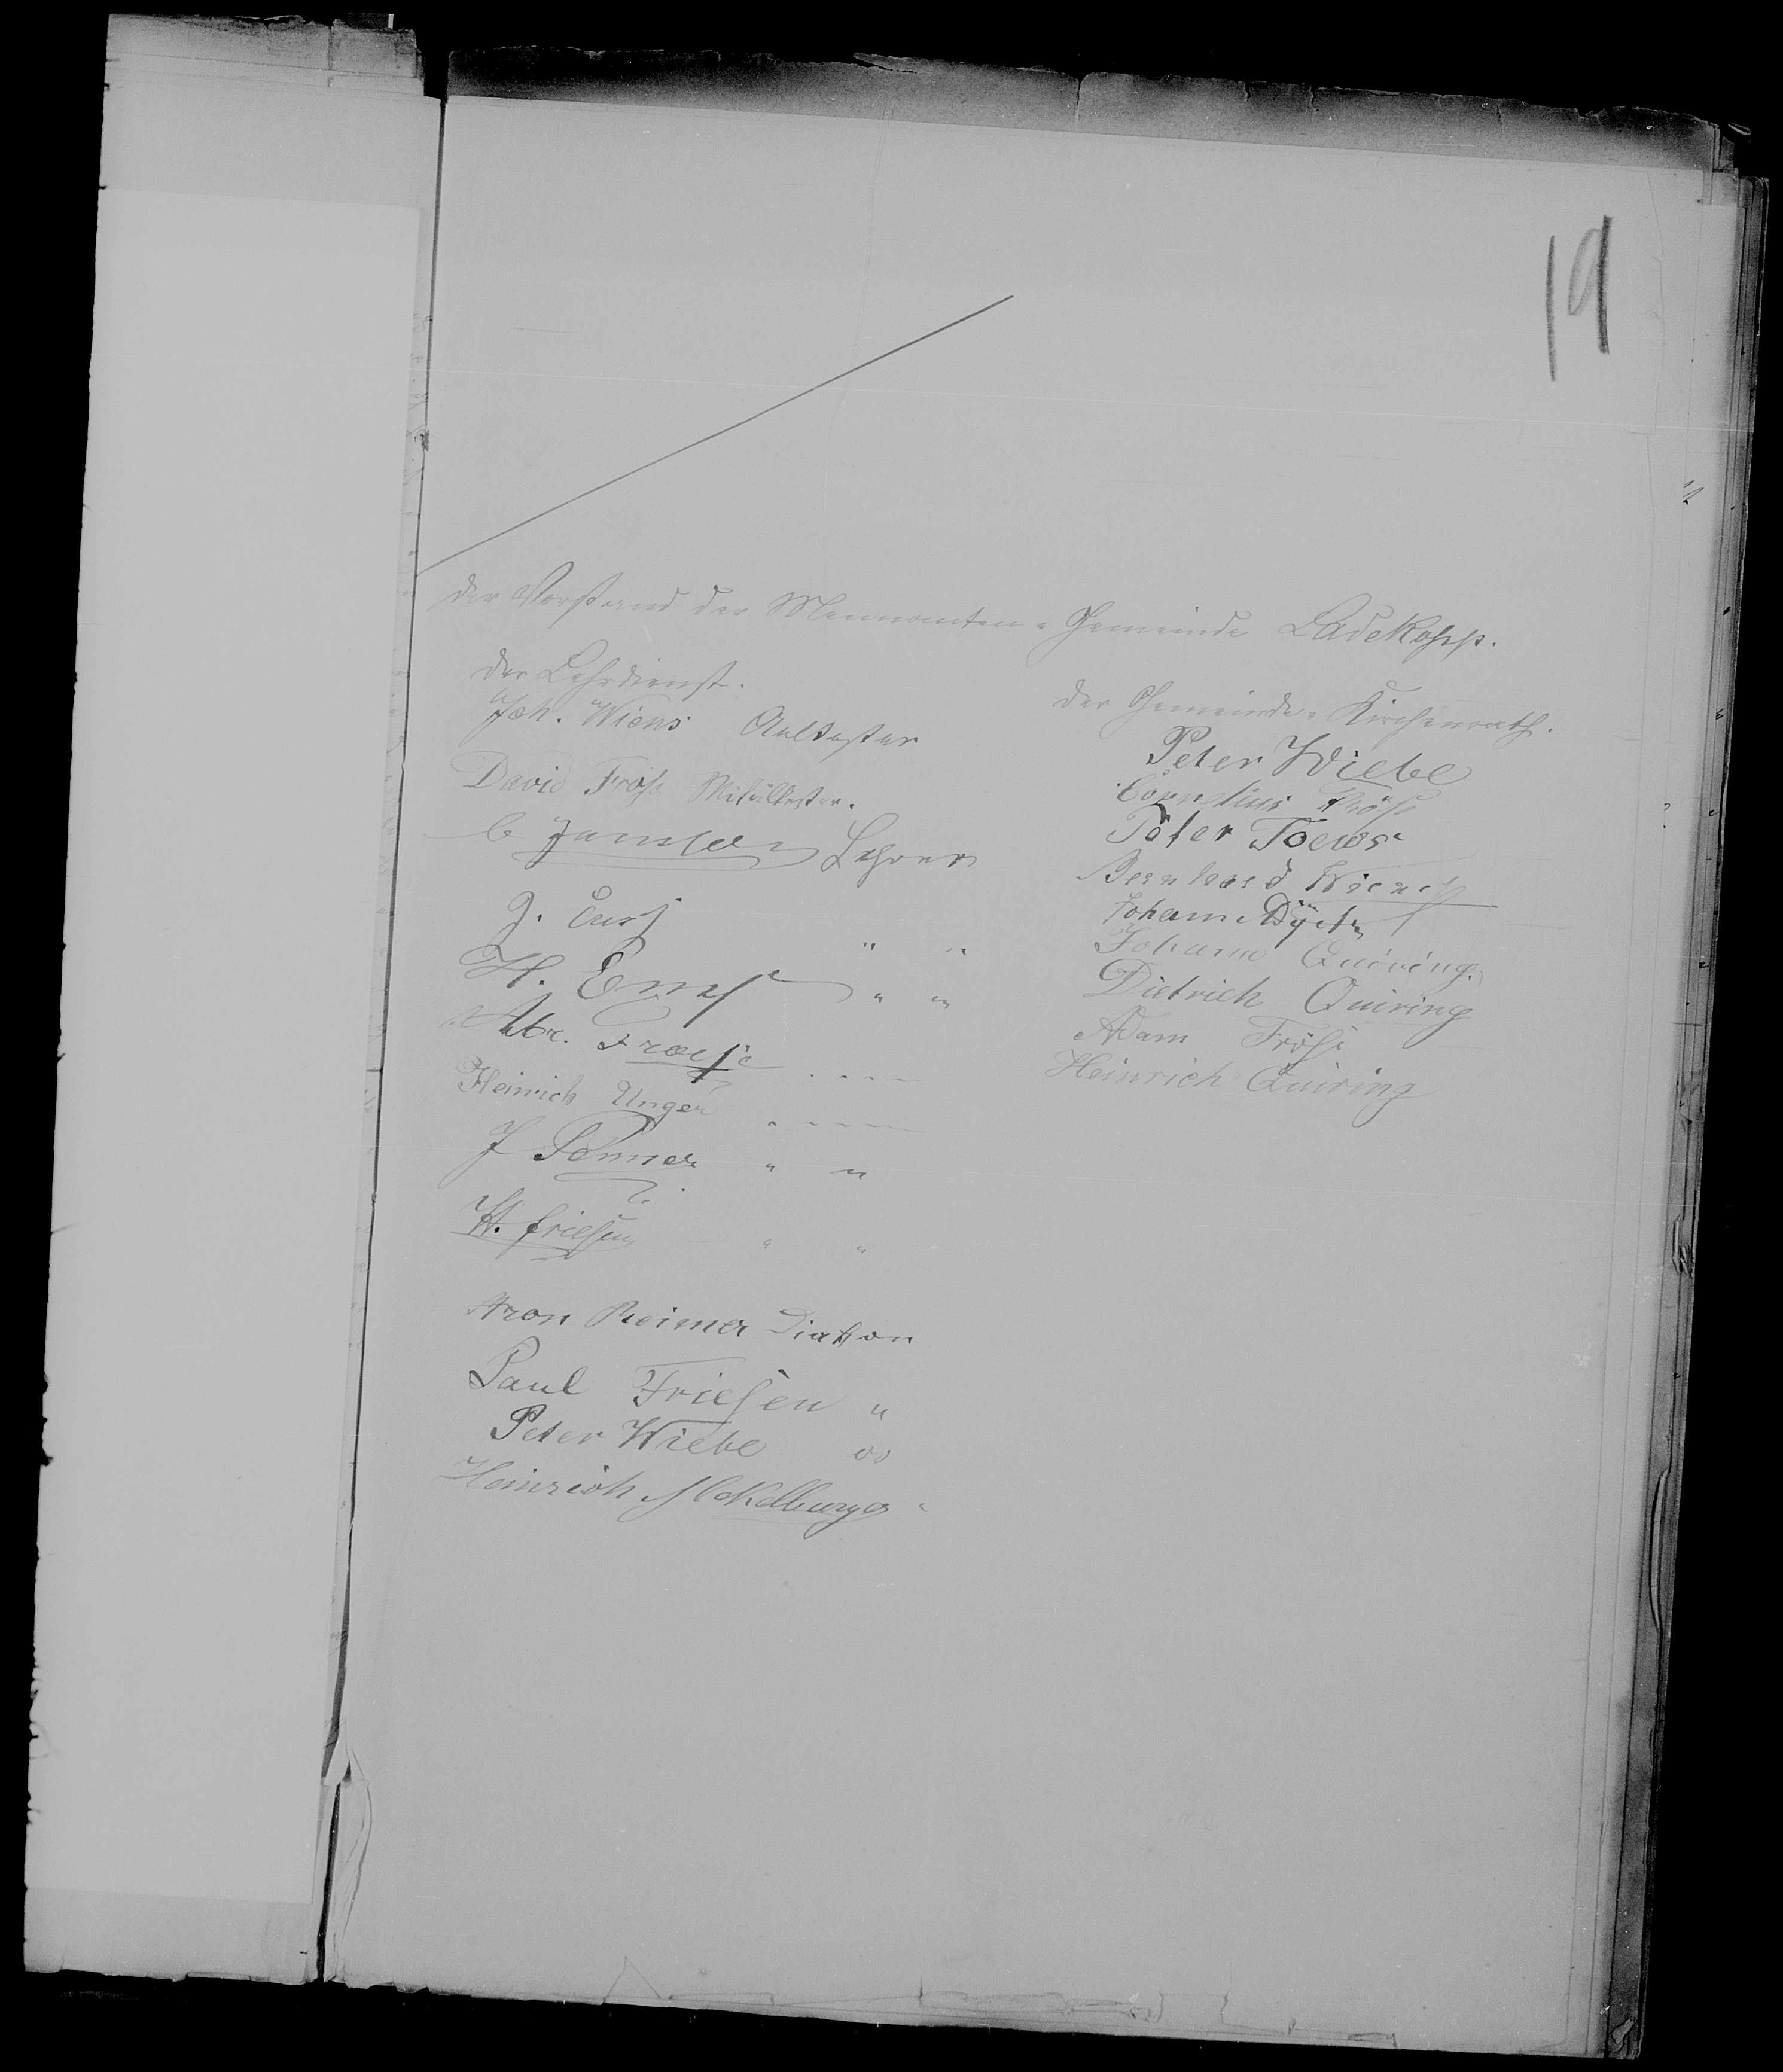 19
Der Vorstand der Mennoniten-Gemeinde Ladekopp.
Der Lehrdienst.
Joh. Wiens Aeltester
David Fröse Mitältester.
C Janssen Lehrer
J. " "
H. Enns " "
Abr. Froese " "
Heinrich Unger " "
J Penner " "
H. Friesen " "
Aron Reimer Diakon
Paul Friesen "
Peter Wiebe "
Heinrich Mekelburger "
Der Gemeinde-Kirchenrath.
Peter Wiebe
Cornelius Fröse
Peter Toews
Bernhard Wiens
Johann Dÿck
Johann Quiring.
Dietrich Quiring
Adam Fröse
Heinrich Quiring